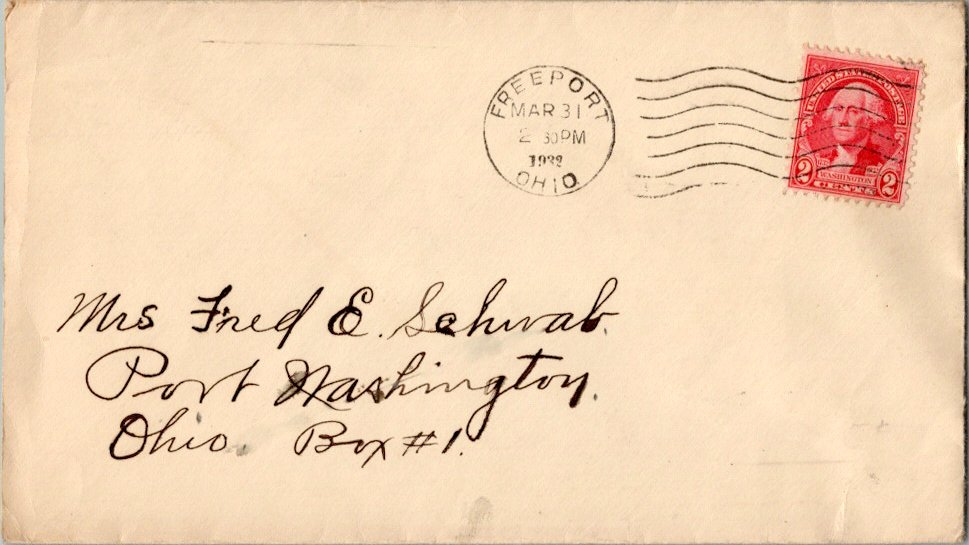 FREEPORT
MAR 31
2 30 PM
1932
OHIO
UNITED STATES POSTAGE
2 WASHINGTON 2
CENTS
Mrs Fred E. Schwab.
Port Washington.
Ohio. Box #1.